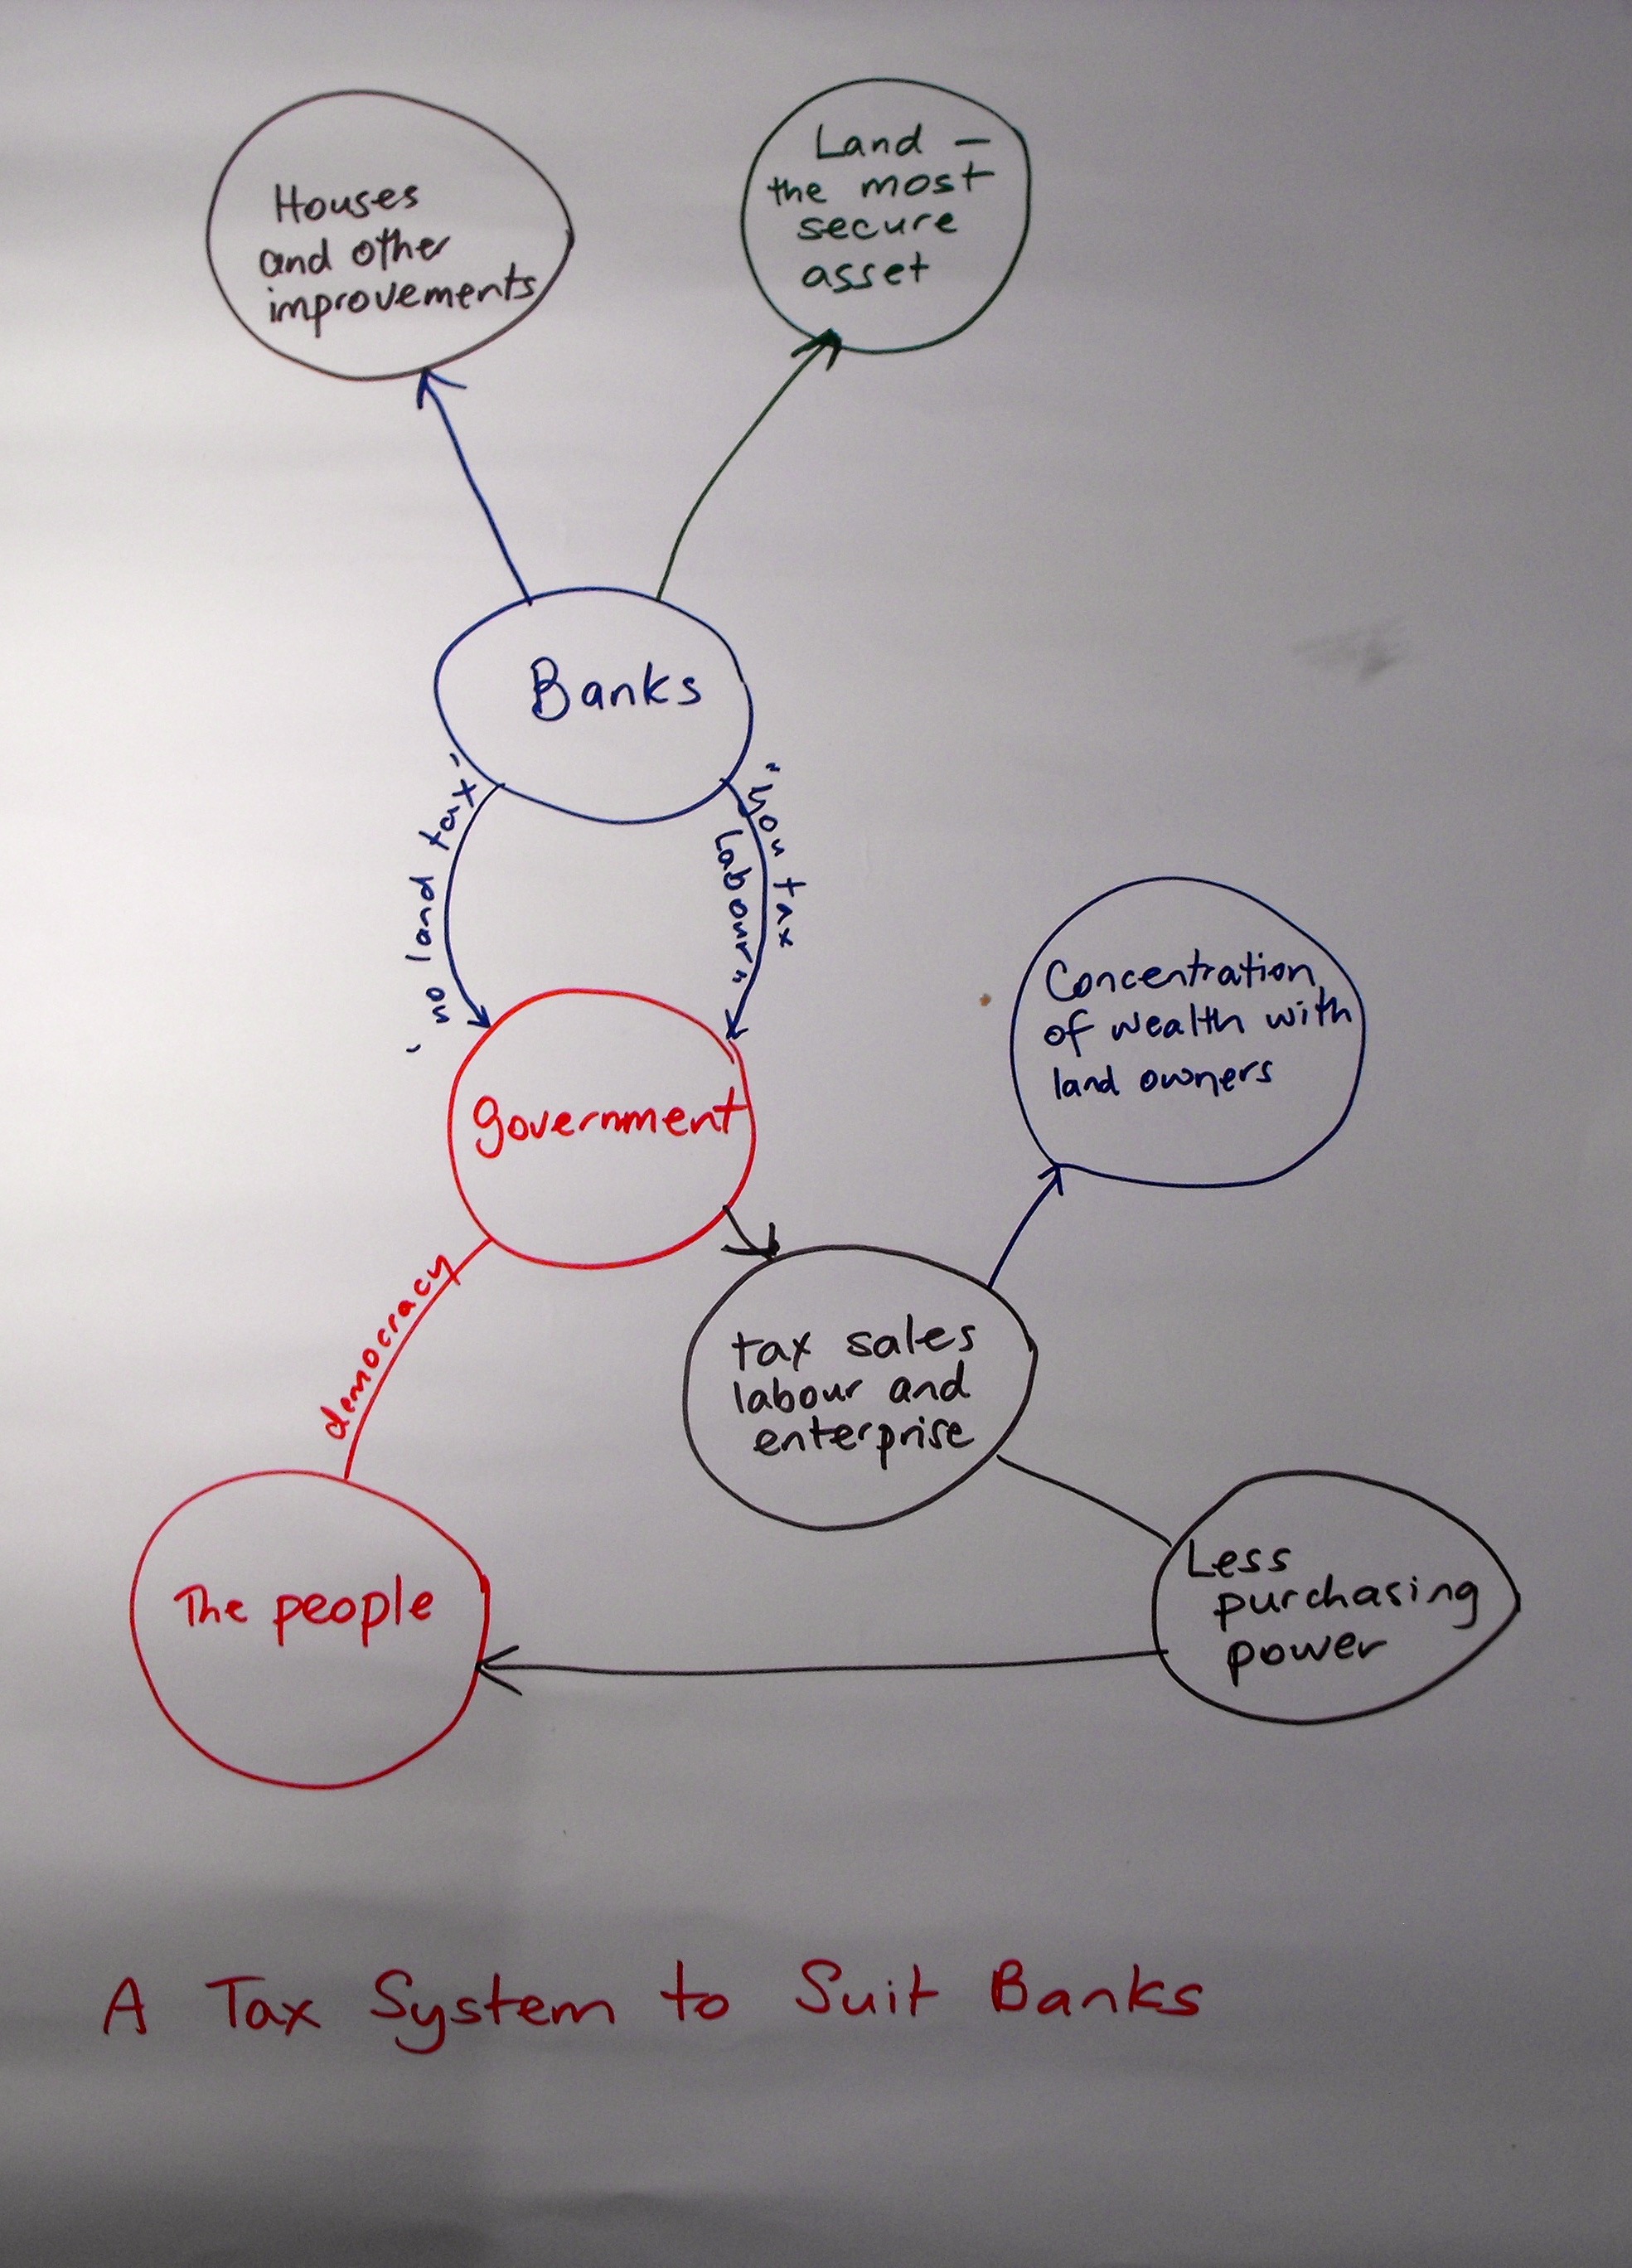 Houses
and other
improvements
Land –
the most
secure
asset
Banks
"no land tax"
"you tax
labour"
government
Concentration
of wealth with
land owners
democracy
tax sales
labour and
enterprise
The people
Less
purchasing
power
A Tax System to Suit Banks